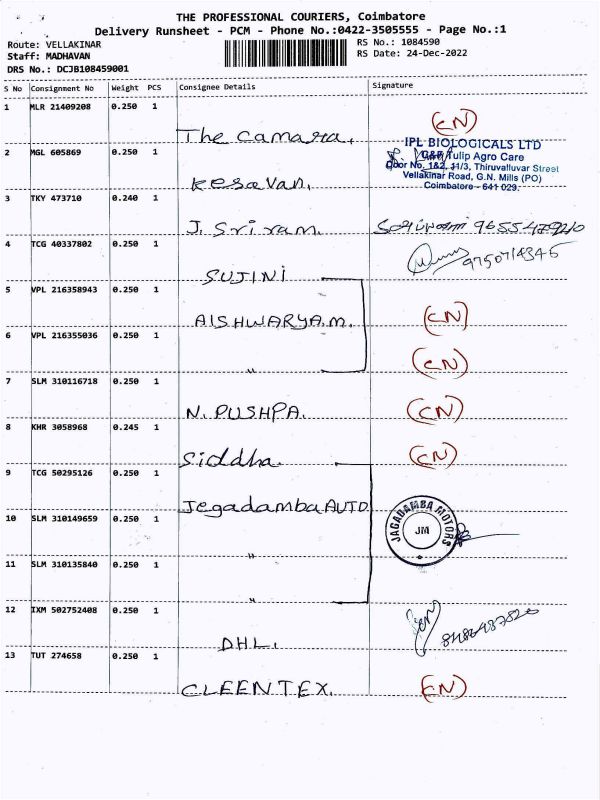 THE PROFESSIONAL COURIERS, Coimbatore
Delivery Runsheet - PCM - Phone No.:0422-3505555 - Page No.:1
Route: VELLAKINAR RS No.: 1084590
Staff: MADHAVAN RS Date: 24-Dec-2022
DRS No.: DCJB108459001
S No Consignment No Weight PCS Consignee Details Signature
1 MLR 21409208 0.250 1 The Camara. (CN)
2 MGL 605869 0.250 1 Kesavan.
IPL BIOLOGICALS LTD
C&F Tulip Agro Care
Door No. 1&2, 11/3, Thiruvalluvar Street
Vellakinar Road, G.N. Mills (PO)
Coimbatore - 641 029.
3 TKY 473710 0.240 1 J. Sriram.
4 TCG 40337802 0.250 1 SUJINI 9750714346
5 VPL 216358943 0.250 1 AISHWARYA.M. (CN)
6 VPL 216355036 0.250 1 " (CN)
7 SLM 310116718 0.250 1 N. PUSHPA. (CN)
8 KHR 3058968 0.245 1 Siddha. (CN)
9 TCG 50295126 0.250 1 Jegadamba AUTO
10 SLM 310149659 0.250 1 " JAGADAMBA MOTORS JM
11 SLM 310135840 0.250 1 "
12 IXM 502752408 0.250 1 DHL.
13 TUT 274658 0.250 1 CLEENTEX. (CN)